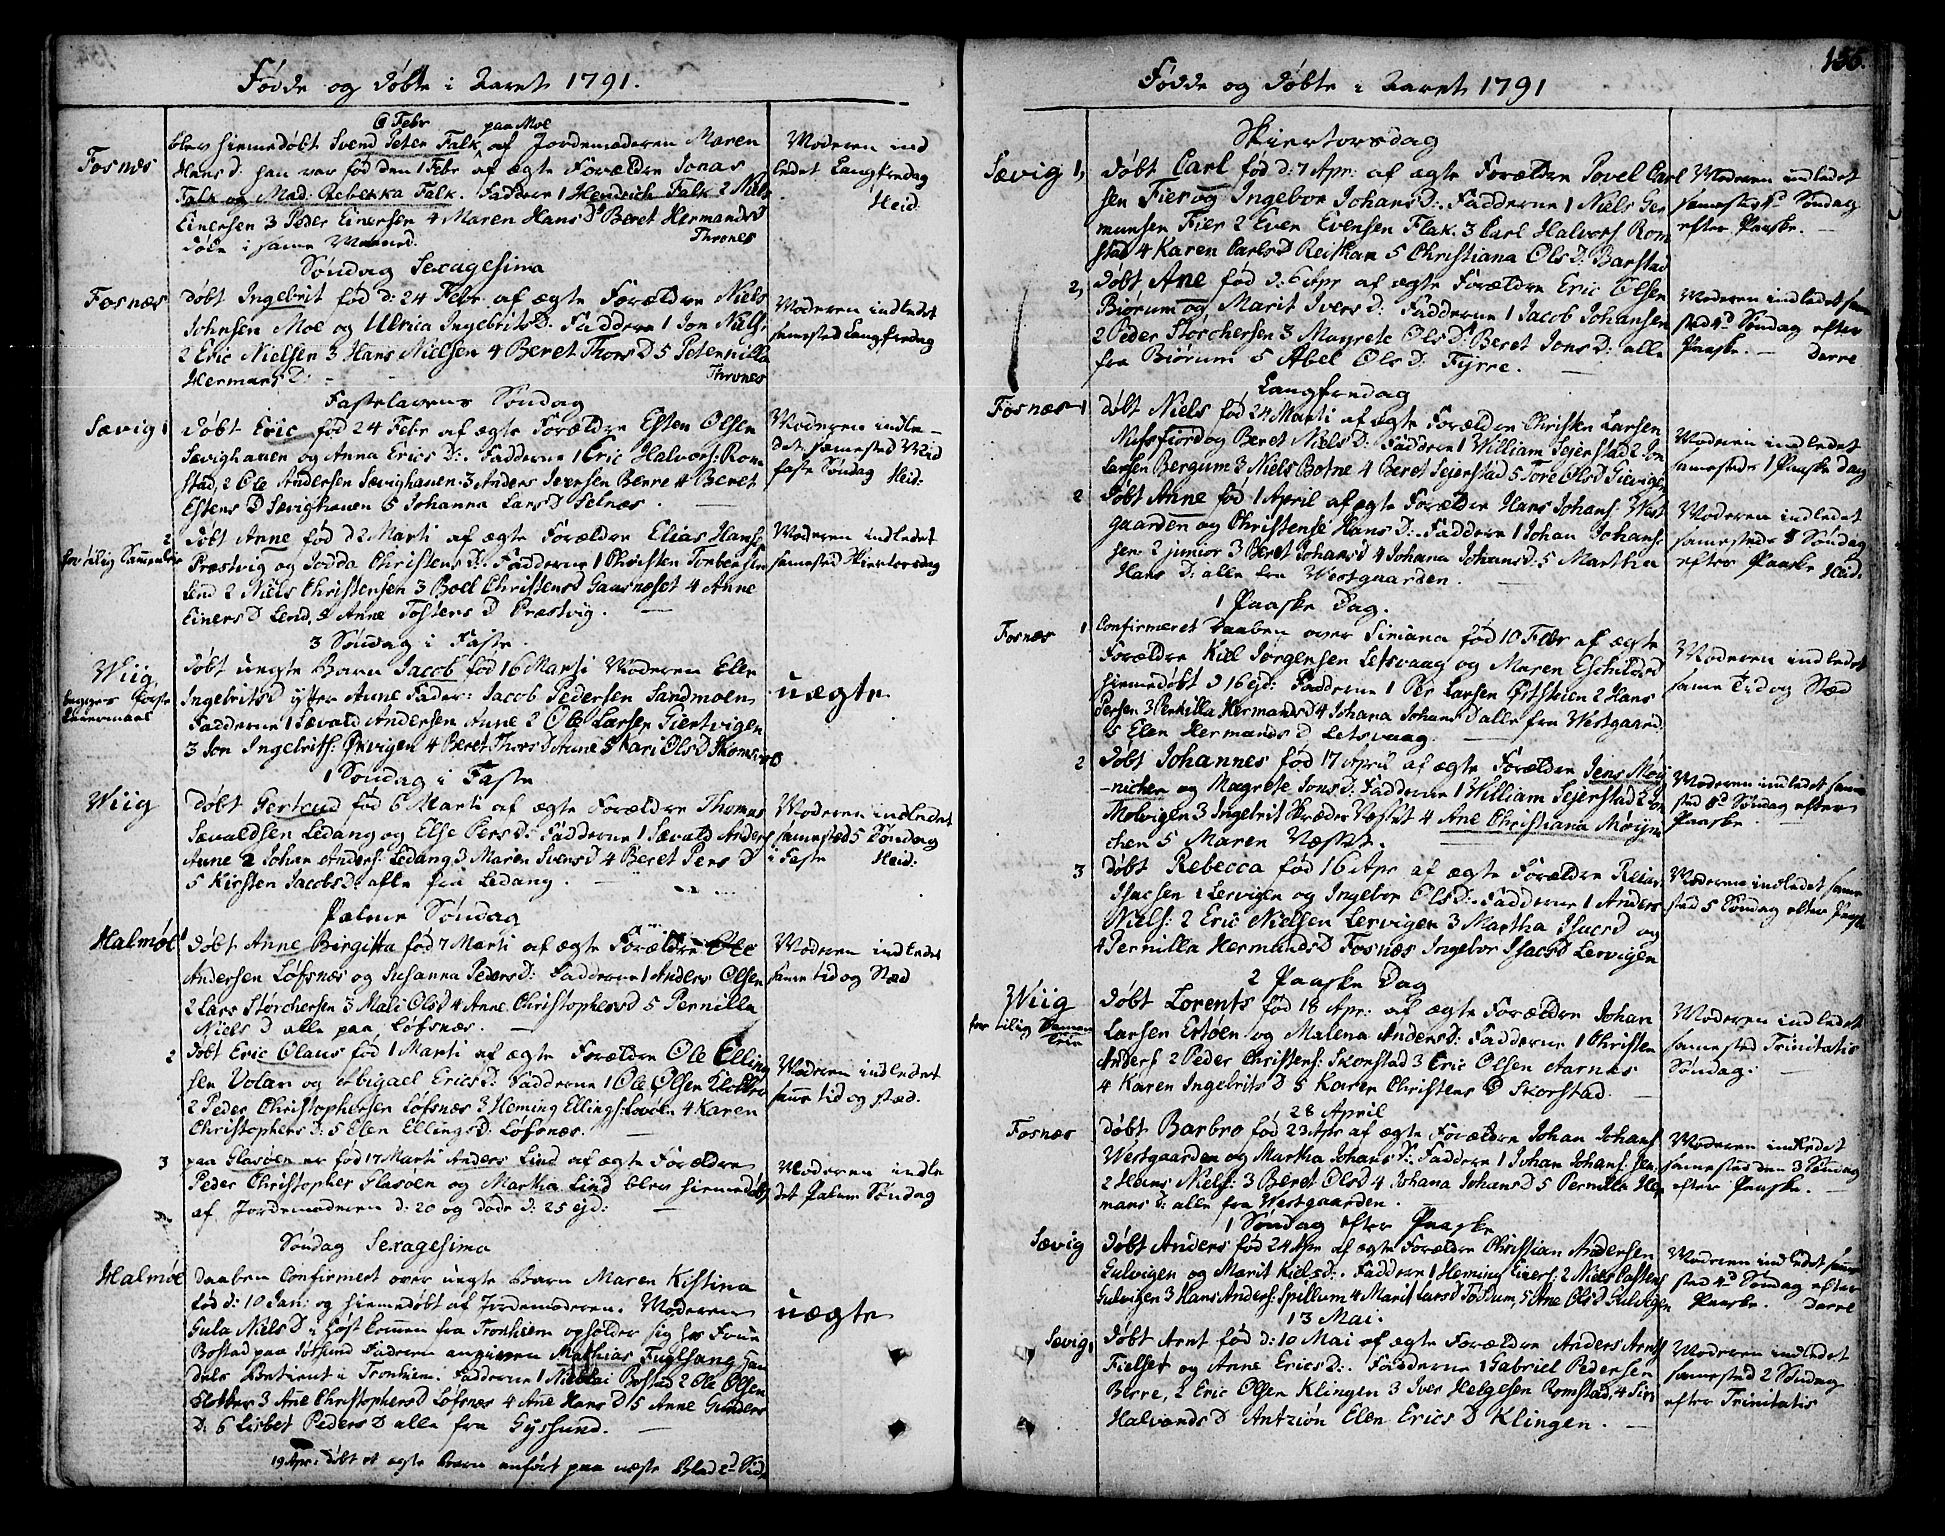 Fødde og døbte i Aaret 1791.
6 Febr paa Moe
Fosnæs
blev hiemedøbt Svend Peter Falk af Jordemoderen Maren
Hans D. han var fød den 1 Febr af ægte Forældre Jonas
Falk og Mad. Rebekka Falk. Faddere 1 Hendrich Falk 2 Niels
Einersen 3 Peder Einersen 4 Maren Hans D Beret Hermands D
døde i samme Maaned. Thrones
Moderen ind
ledet Langfredag
Heid:
Søndag Sexagesima
Fosnæs
døbt Ingebrit fød d: 24 Febr af ægte Forældre Niels
Johnsen Moe og Ulrica Ingebrits D: Faddere 1 Jon Niels:
2 Eric Nielsen 3 Hans Nielsen 4 Beret Thors D 5 Peternilla
Hermans D: Thrones
Moderen indledet
samested Langfredag
Fastelavens Søndag
Sævig 1
døbt Eric fød 24 Febr af ægte Forældre Esten Olsen
Sævighauen og Anna Erics D: Fadderne 1 Eric Halvors: Rom
stad, 2 Ole Andersen Sævighauen 3 Anders Iversen Berre 4 Beret
Estens D Sævighauen 5 Johanna Lars D Selnæs.
Moderen indle-
det samested Mid
faste Søndag Heid:
2
døbt Anne fød d 2 Marti af ægte Forældre Elias Hans:
Præstvig og Jodda Christens D: Fadderne 1 Christen Torbersen
Lend 2 Niels Christensen 3 Boel Christens D Gaasnæset 4 Anne
Einers D Lend, 5 Anne Tostens D Præstvig.
for tilig Sammenleie
Moderen indledet
samested Skiertorsdag
3 Søndag i Faste.
Wiig
døbt uægte Barn Jacob fød 16 Marti Moderen Elen
Ingebrits D ytter Aune Fader: Jacob Pedersen Sandmoen
Fadderne 1 Sævald Andersen Aune 2 Ole Larsen Gientvigen
3 Jon Ingebrits: Økvigen 4 Beret Thors D Aune 5 Kari Ols D
begges første
Leiermaal
uægte
1 Søndag i Faste
Wiig
døbt Gertrud fød 6 Marti af ægte Forældre Thomas
Sævaldsen Ledang og Else Pers D: Fadderne 1 Sævald Anders
Aune 2 Johan Anders: Ledang 3 Maren Svens D 4 Beret Pers D
5 Kirsten Jacobs D: alle fra Ledang.
Moderen indledet
samested 5 Søndag
i Faste Heid:
Palme Søndag
Halmøe 1
døbt Anne Birgitta fød 7 Marti af ægte Forældre Ole
Andersen Løfsnæs og Susanna Peders D: Fadderne 1 Anders Olsen
2 Lars Størchersen 3 Mali Ols D 4 Ane Christophers D 5 Pernilla
Niels D alle paa Løfsnæs.
Moderen indledet
same tid og Stæd
2
døbt Eric Olaus fød 1 Marti af ægte Forældre Ole Elling
sen Volan og Abigael Erics D: Fadderne 1 Ole Olsen Klotter
2 Peder Christophersen Løfsnæs 3 Heming Ellings: Lovøen 4 Karen
Christophers D: 5 Elen Ellings D: Løfsnæs.
Moderen indledet
same tid og stæd.
3
paa Glasøen er fød 17 Marti Anders Lind af ægte Forældre
Peder Christopher Glasøen og Martha Lind blev hiemedøbt
af Jordemoderen d: 20 og døde d: 25 ejd:
Moderen indle
det Palme Søndag
Søndag Sexagesima
Halmøe
daaben Confirmert over uægte Barn Maren Kistina
fød d: 10 Jan: og hiemedøbt af Jordemoderen. Moderen
Gula Niels D i høst kommen fra Tronhiem opholder sig hos Frue
Bostad paa Faderen angiven Mathias Fuglsang Han
dels Betient i Tronhiem. Fadderne 1 Nicolai Bostad 2 Ole Olsen
Klotter 3 Ane Christophers D Løfsnæs 4 Ane Hans D 5 Anne Gunders
D: 6 Lisbet Peders D alle fra Gyssund.
uægte
19 Apr: døbt et ægte Barn anført paa næste Blad 2d Side
155.
Fødde og Døbte i Aaret 1791
Skiertorsdag
Sævig 1,
døbt Carl fød d: 7 Apr: af ægte Forældre Povel Carl
sen Fier og Ingebor Johans D: Fadderne 1 Niels Ger
munsen Fier 2 Even Evensen Flak. 3 Carl Halvors Rom
stad 4 Karen Carls D 5 Christiana Ols D: Barstad
Moderen indledet
samested 1d Søndag
efter Paaske.
2,
døbt Ane fød d: 6 Apr af ægte Forældre Eric Olsen
Biørum og Marit Ivers D: Fadderne 1 Jacob Johansen
2 Peder Størchersen 3 Magrete Ols D: Beret Jons D: alle
fra Biørum 5 Abel Ols D: Fyrre.
Moderen indledet same
sted 4d Søndag efter
Paaske. - Derre
Langfredag
Fosnæs 1
døbt Niels fød 24 Marti af ægte Forældre Christen Larsen
Nufsfiord og Beret Niels D: Fadderne 1 William Sejerstad 2 Jon
Larsen Bergum 3 Niels Botne 4 Beret Sejerstad 5 Tore Ols D
Moderen indledet
samesteds 1 Paaske Dag
2
døbt Anne fød 1 April af ægte Forældre Hans Johans: West
gaarden og Christense Hans D: Fadderne 1 Johan Johans
sen 2 junior 3 Beret Johans D 4 Johana Johans D: 5 Martha
Hans D: alle fra Westgaarden.
Moderen indledet
samesteds Søndag
efter Paaske Heid:
1 Paaske Dag.
Fosnæs
1
Confirmeret Daaben over Siriana fød 10 Febr af ægte
Forældre Kiel Jørgensen Letsvaag og Maren Eschilds D
hiemedøbt d 16 ejd: Fadderne 1 Per Larsen 2 Hans
Persen 3 Pernilla Hermands D 4 Johana Johans D alle fra Westgaard
5 Elen Hermands D Letsvaag.
Moderen indledet
same Tid og Stæd
2
døbt Johannes fød 17 April af ægte Forældre Jens Møy
-nichen og Magrete Jons D: Fadderne 1 William Sejerstad 2 Jon
Molvigen 3 Ingebrit Skræder Næsset 4 Ane Christiana Møyn
chen 5 Maren Næsset.
Moderen indledet same
sted Søndag efter
Paaske.
3
døbt Rebecca fød 16 Apr af ægte Forældre Reiar
Isacsen i Lervigen og Ingebor Ols D: Fadderne 1 Anders
Niels: 2 Eric Nielsen Lervigen 3 Martha Isacs D og
4 Pernilla Hermands D Fosnæs Ingebor Isacs D Lervigen
Moderen indledet same
sted 5 Søndag efter Paaske
2 Paaske Dag
Wiig
døbt Lorents fød 18 Apr: af ægte Forældre Johan
Larsen Ertøen og Malena Anders D: Fadderne 1 Christen
Anders 2 Peder Christens: Skorstad 3 Eric Olsen Aarnæs
4 Karen Ingebrits D 5 Karen Christens D Skorstad.
for tilig Samen
leie
Moderen indledet
samested Trinitatis
Søndag:
28 April
Fosnæs
døbt Barbro fød 23 Apr af ægte Forældre Johan Johans:
Westgaarden og Martha Johans D: Faddere 1 Johan Johans: Sen:
2 Hans Niels: 3 Beret Ols D 4 Johana Johans D 5 Pernilla Her
mans D: alle fra Westgaarden.
Moderen indledet
samested den 3 Søndag
efter Paaske.
1 Søndag efter Paaske
Sævig
døbt Anders fød 24 Apr af ægte Forældre Christian Andersen
Gulvigen og Marit Kiels D: Fadderne 1 Heming Einers: 2 Niels Castens
Gulvigen 3 Hans Anders: Spillum 4 Marit Lars D Tøttdum, 5 Ane Ols D Gulvigen
Moderen indledet same
sted 4d Søndag efter
Paaske. Derre
13 Mai.
Sævig 1
døbt Arnt fød d: 10 Mai af ægte Forældre Anders Arnts
Fielset og Anne Erics D: Fadderne 1 Gabriel Pedersen
Berre, 2 Eric Olsen Klingen 3 Iver Helgesen Romstad, 4 Siri
Halvands D Elen Erics D Klingen.
Moderen indledet
samested 2 Søndag
efter Trinitatis